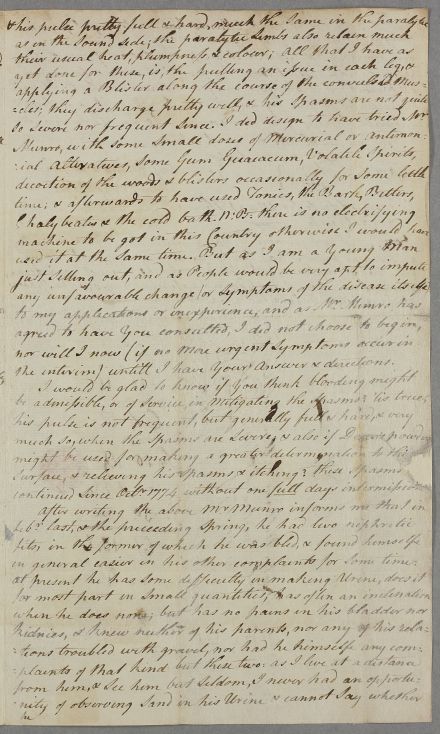 & his pulse pretty full & hard, much the same in the paralytic
as in the sound side; the paralytic limbs also retain much
their usual heat, plumpness & colour; all that I have as
yet done for these, is, the putting an issue in each leg, &
applying a Blister along the course of the convulsed Mus-
-cles; they discharge pretty well, & his spasms are not quite
so severe nor frequent since. I did design to have tried Mr
Munro, with some small doses of Mercurial or Antimon-
-ial Alteratives, some Gum Guaiacum, Volatile Spirits,
decoction of the woods & blisters occasionally for some little
time; & afterwards to have used Tonics, the Bark, Bitters,
Chalybeates & the cold bath. N.B. there is no electrifying
machine to be got in this Country otherwise I would have
used it at the same time. But as I am a Young Man
just setting out, and as People would be very apt to impute
any unfavourable change, or symptoms of the disease itself
to my applications or inexperience, and as Mr. Munro has
agreed to have You consulted, I did not choose to begin,
nor will I now (if no more urgent symptoms occur in
the interim) untill I have Your Answer & directions.
I would be glad to know if You think blooding might
be admissible, or of service, in mitigating the spasms? tis true,
his pulse is not frequent, but generally full & hard, & very
much so, when the spasms are severe; & also if powder
might be used for making a greater determination to the
surface, & relieving his spasms & itching? these spasms
continued since Octr. 1774 without one full days intermission
After writing the above Mr Munro informs me that in
last, & the preceeding Spring, he had two nephretic
fits, in the former of which he was bled, & found himself
in general easier in his other complaints for some time.
at present he has some difficulty in making Urine, does it
for most part in small quantities, has often an inclination
when he does none; but has no pains in his bladder nor
kidnies, & knew neither of his parents, nor any of his rela-
-tions troubled with gravel, nor had he himself any com-
-plaints of that kind but these two: as I live at a distance
from him, & see him but seldom, I never had an opportu-
-nity of observing sand in his Urine & cannot say whether
he